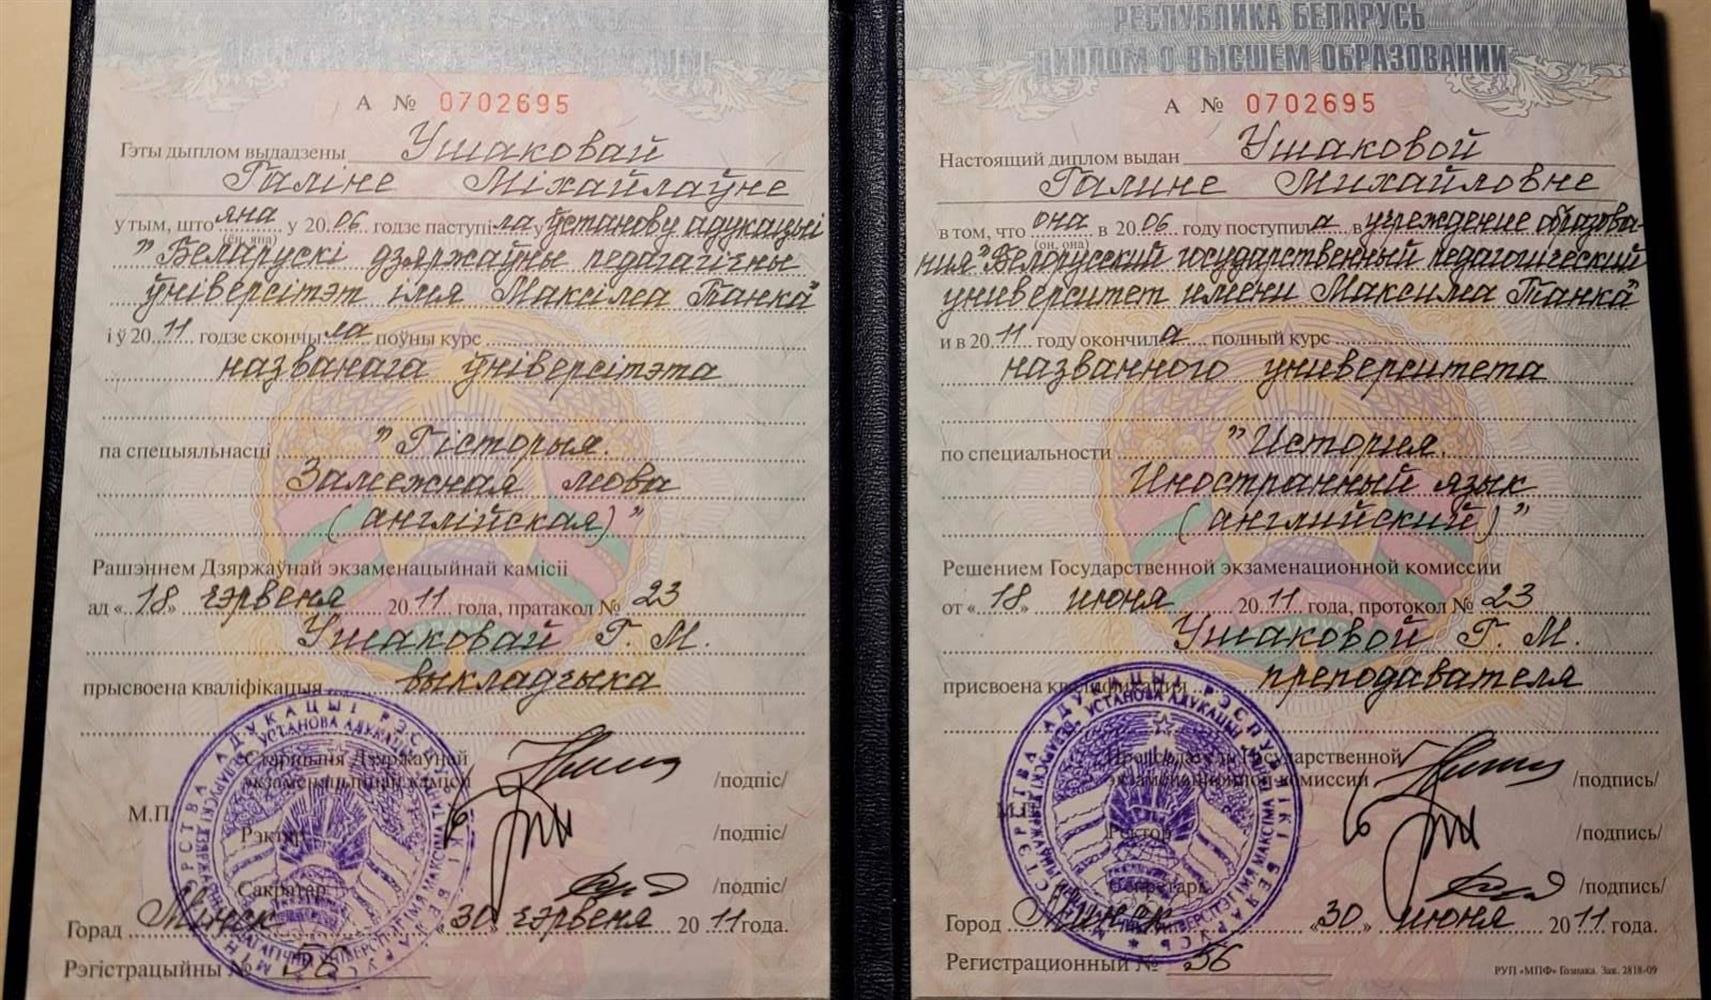 А № 0702695
Гэты дыплом выдадзены Ушаковай
Галіне Міхайлаўне
у тым, што яна у 2006 годзе паступіла у ўстанову адукацыі
(ён, яна)
"Беларускі дзяржаўны педагагічны
ўніверсітэт імя Максіма Танка"
і ў 2011 годзе скончыла поўны курс
названага ўніверсітэта
па спецыяльнасці "Гісторыя.
Замежная мова
(англійская)"
Рашэннем Дзяржаўнай экзаменацыйнай камісіі
ад «18» чэрвеня 2011 года, пратакол № 23
Ушаковай Г. М.
прысвоена кваліфікацыя выкладчыка
Старшыня Дзяржаўнай
экзаменацыйнай камісіі /подпіс/
М.П.
Рэктар /подпіс/
Сакратар /подпіс/
Горад Мінск «30» чэрвеня 2011 года.
Рэгістрацыйны № 56
РЕСПУБЛИКА БЕЛАРУСЬ
ДИПЛОМ О ВЫСШЕМ ОБРАЗОВАНИИ
А № 0702695
Настоящий диплом выдан Ушаковой
Галине Михайловне
в том, что она в 2006 году поступила в учреждение образова-
(он, она)
ния "Белорусский государственный педагогический
университет имени Максима Танка"
и в 2011 году окончила полный курс
названного университета
по специальности "История.
Иностранный язык
(английский)"
Решением Государственной экзаменационной комиссии
от «18» июня 2011 года, протокол № 23
Ушаковой Г. М.
присвоена квалификация преподавателя
Председатель Государственной
экзаменационной комиссии /подпись/
М.П.
Ректор /подпись/
Секретарь /подпись/
Город Минск «30» июня 2011 года.
Регистрационный № 56
РУП «МПФ» Гознака. Зак. 2818-09